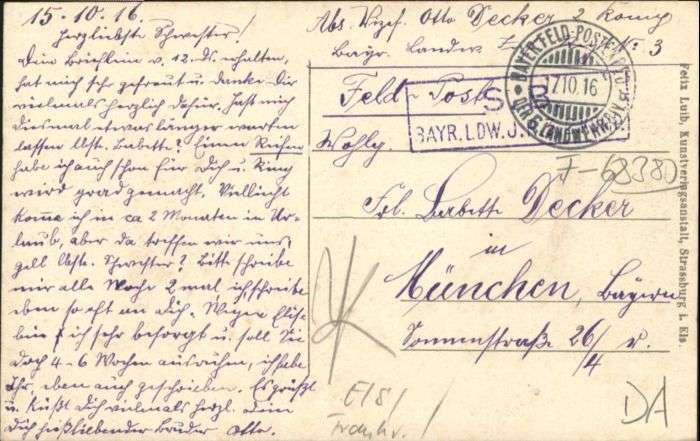 15.10.16.
Herzliebste Schwester!
Dein Brieflein v. 12. ds. erhalten,
hat mich sehr gefreut u. danke Dir
vielmals herzlich dafür. Hast mich
diesmal etwas länger warten
lassen lbste. Babette? Einen
habe ich auch schon für Dich u.
wird grad gemacht. Vielleicht
komme ich in ca 2 Monaten in Ur-
laub, aber da treffen wir uns,
gell lbste. Schwester? Bitte schreibe
mir alle Woche 2 mal, ich schreibe
eben so oft an Dich. Wegen Elise
bin ich sehr besorgt u. soll Sie
doch 4-6 Wochen ausruhen, ich habe
Ihr eben auch geschrieben. Es grüßt
u. küßt Dich vielmals herzl. Dein
Dich heißliebender Bruder Otto.
Abs. Vizef. Otto Decker 2 Komp
Bayr. Landw. No: 3
Feld-Post
S B
BAYR. LDW. J. R.
BAYER. FELD-POSTEXP.
17.10.16
DER 6. LANDWEHR DIV.
J-68380
Frl. Babette Decker
in
München, Bayern
Tommstraße 26/4 r.
Els/
Frankr. /
DA
Felix Luib, Kunstverlagsanstalt, Strassburg i. Els.